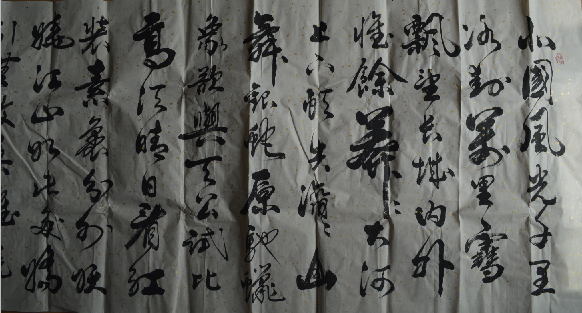 北國風光千里
冰封萬里雪
飄望長城內外
惟餘莽〻大河
上下頓失滔〻山
舞銀蛇原馳蠟
象欲與天公試比
高須晴日看紅
裝素裹分外妖
嬈江山如此多嬌
引無數英雄